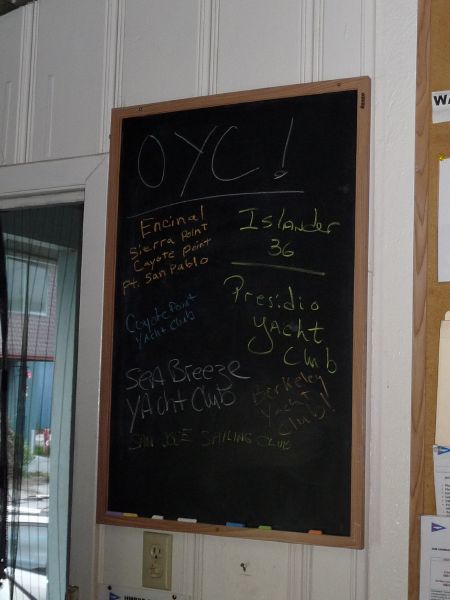 OYC!
Encinal
Sierra Point
Cayote Point
Pt. San Pablo
Islander
36
Coyote Point
Yacht Club
Presidio
Yacht
Club
Sea Breeze
Yacht Club
Berkeley
Yacht
Club!
SAN JOSE SAILING CLUB
WA